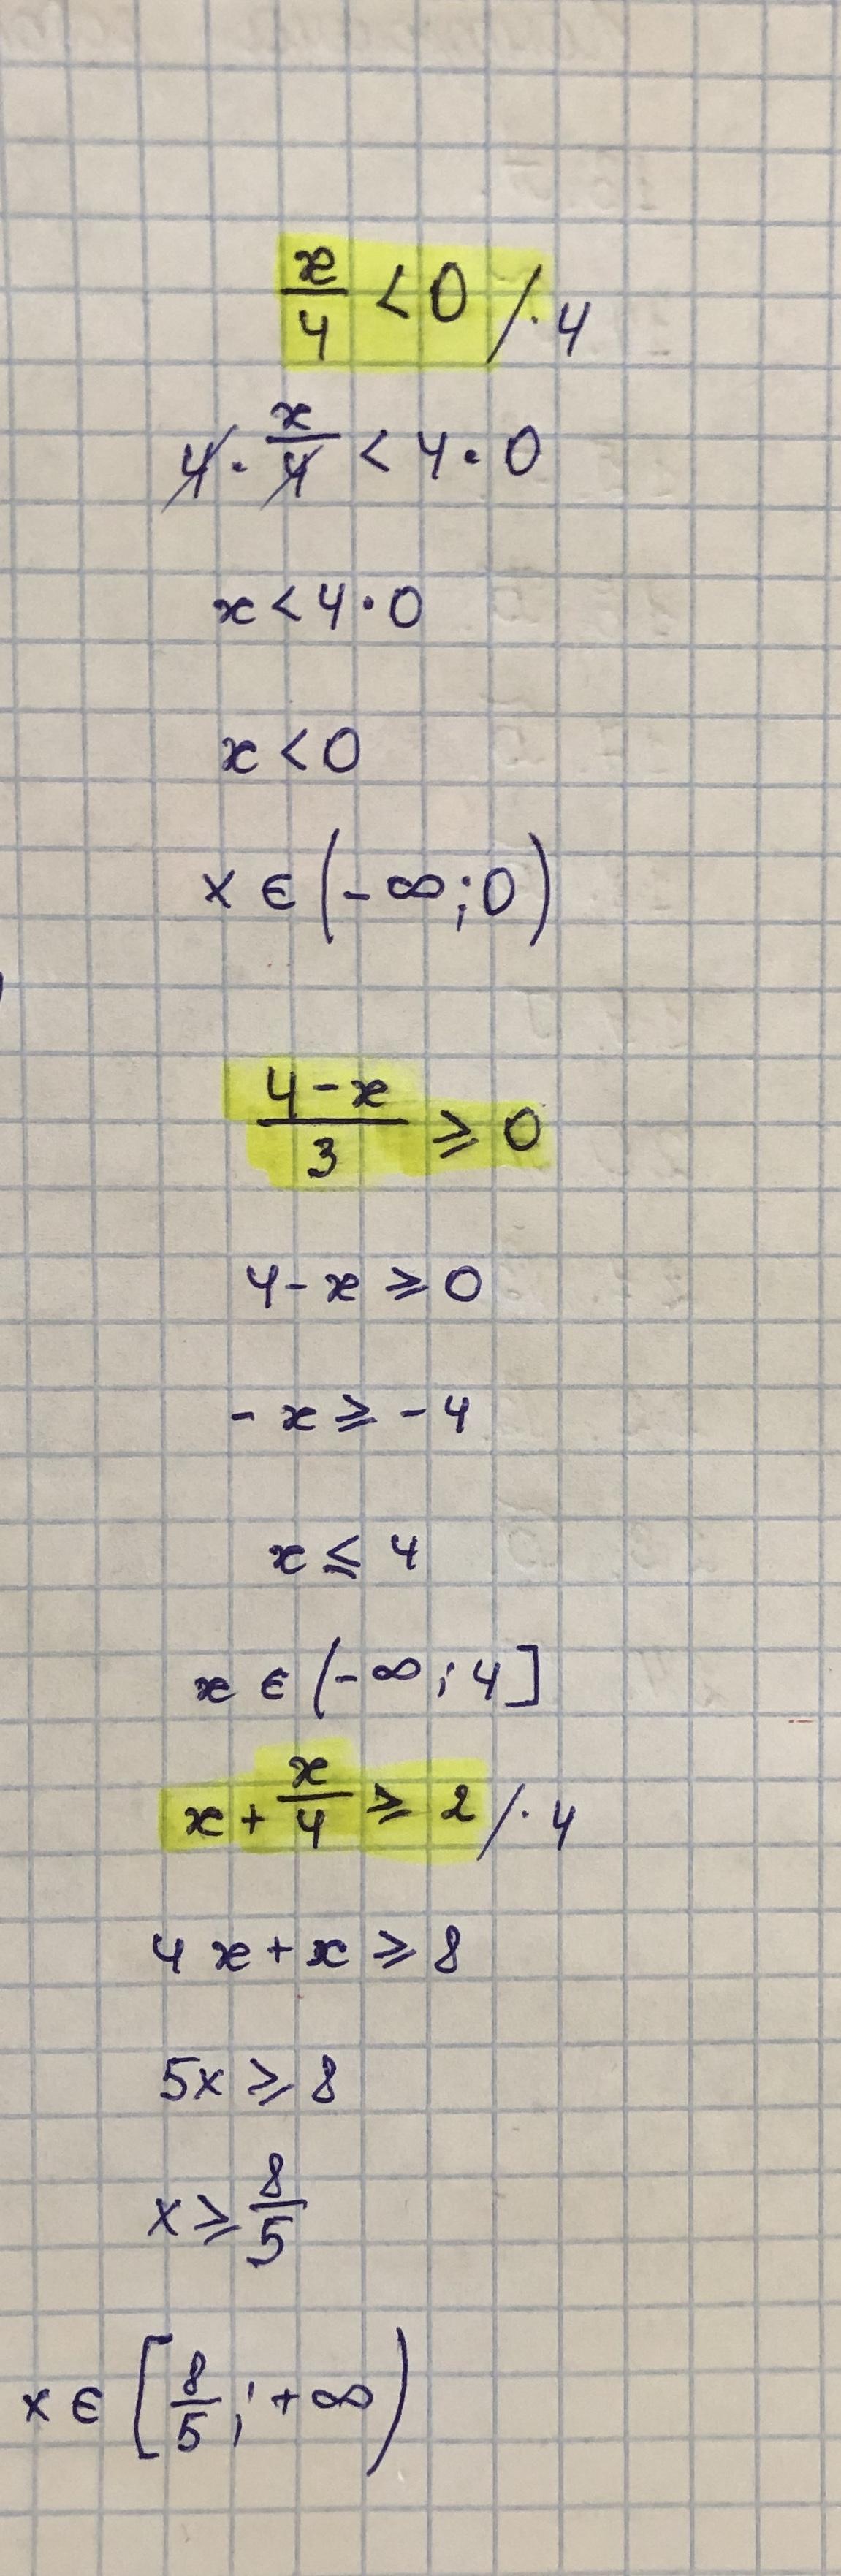 x/4 < 0 /·4
4 · x/4 < 4 · 0
x < 4 · 0
x < 0
x ∈ (-∞; 0)
4-x/3 ≥ 0
4-x ≥ 0
-x ≥ -4
x ≤ 4
x ∈ (-∞; 4]
x + x/4 ≥ 2 /·4
4x + x ≥ 8
5x ≥ 8
x ≥ 8/5
x ∈ [8/5; +∞)